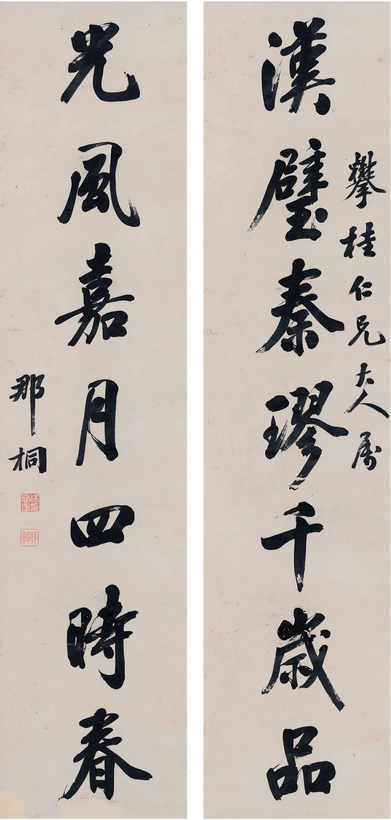 攀桂仁兄大人属
漢璧秦璆千歲品
光風嘉月四時春
那桐